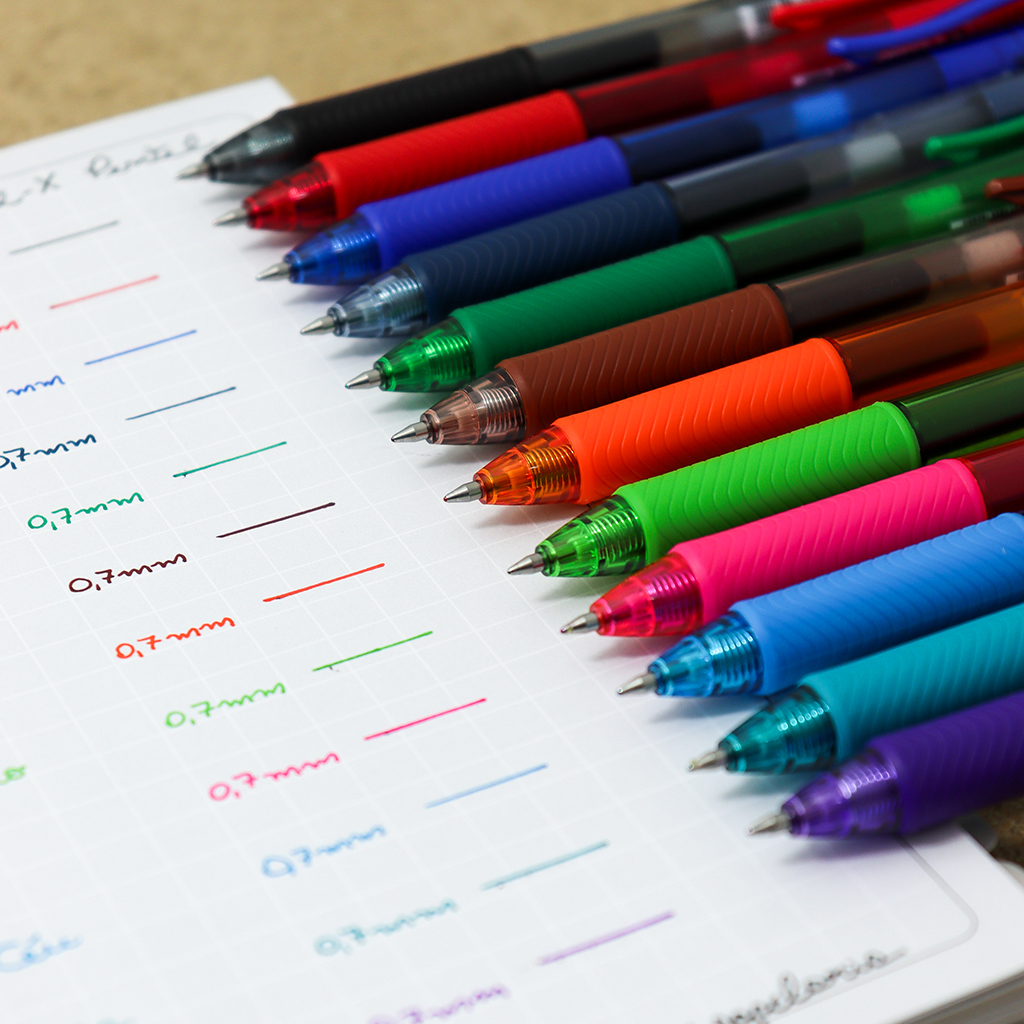 Pentel
mm
0,7mm
0,7mm
0,7mm
0,7mm
0,7mm
0,7mm
0,7mm
0,7mm
0,7mm